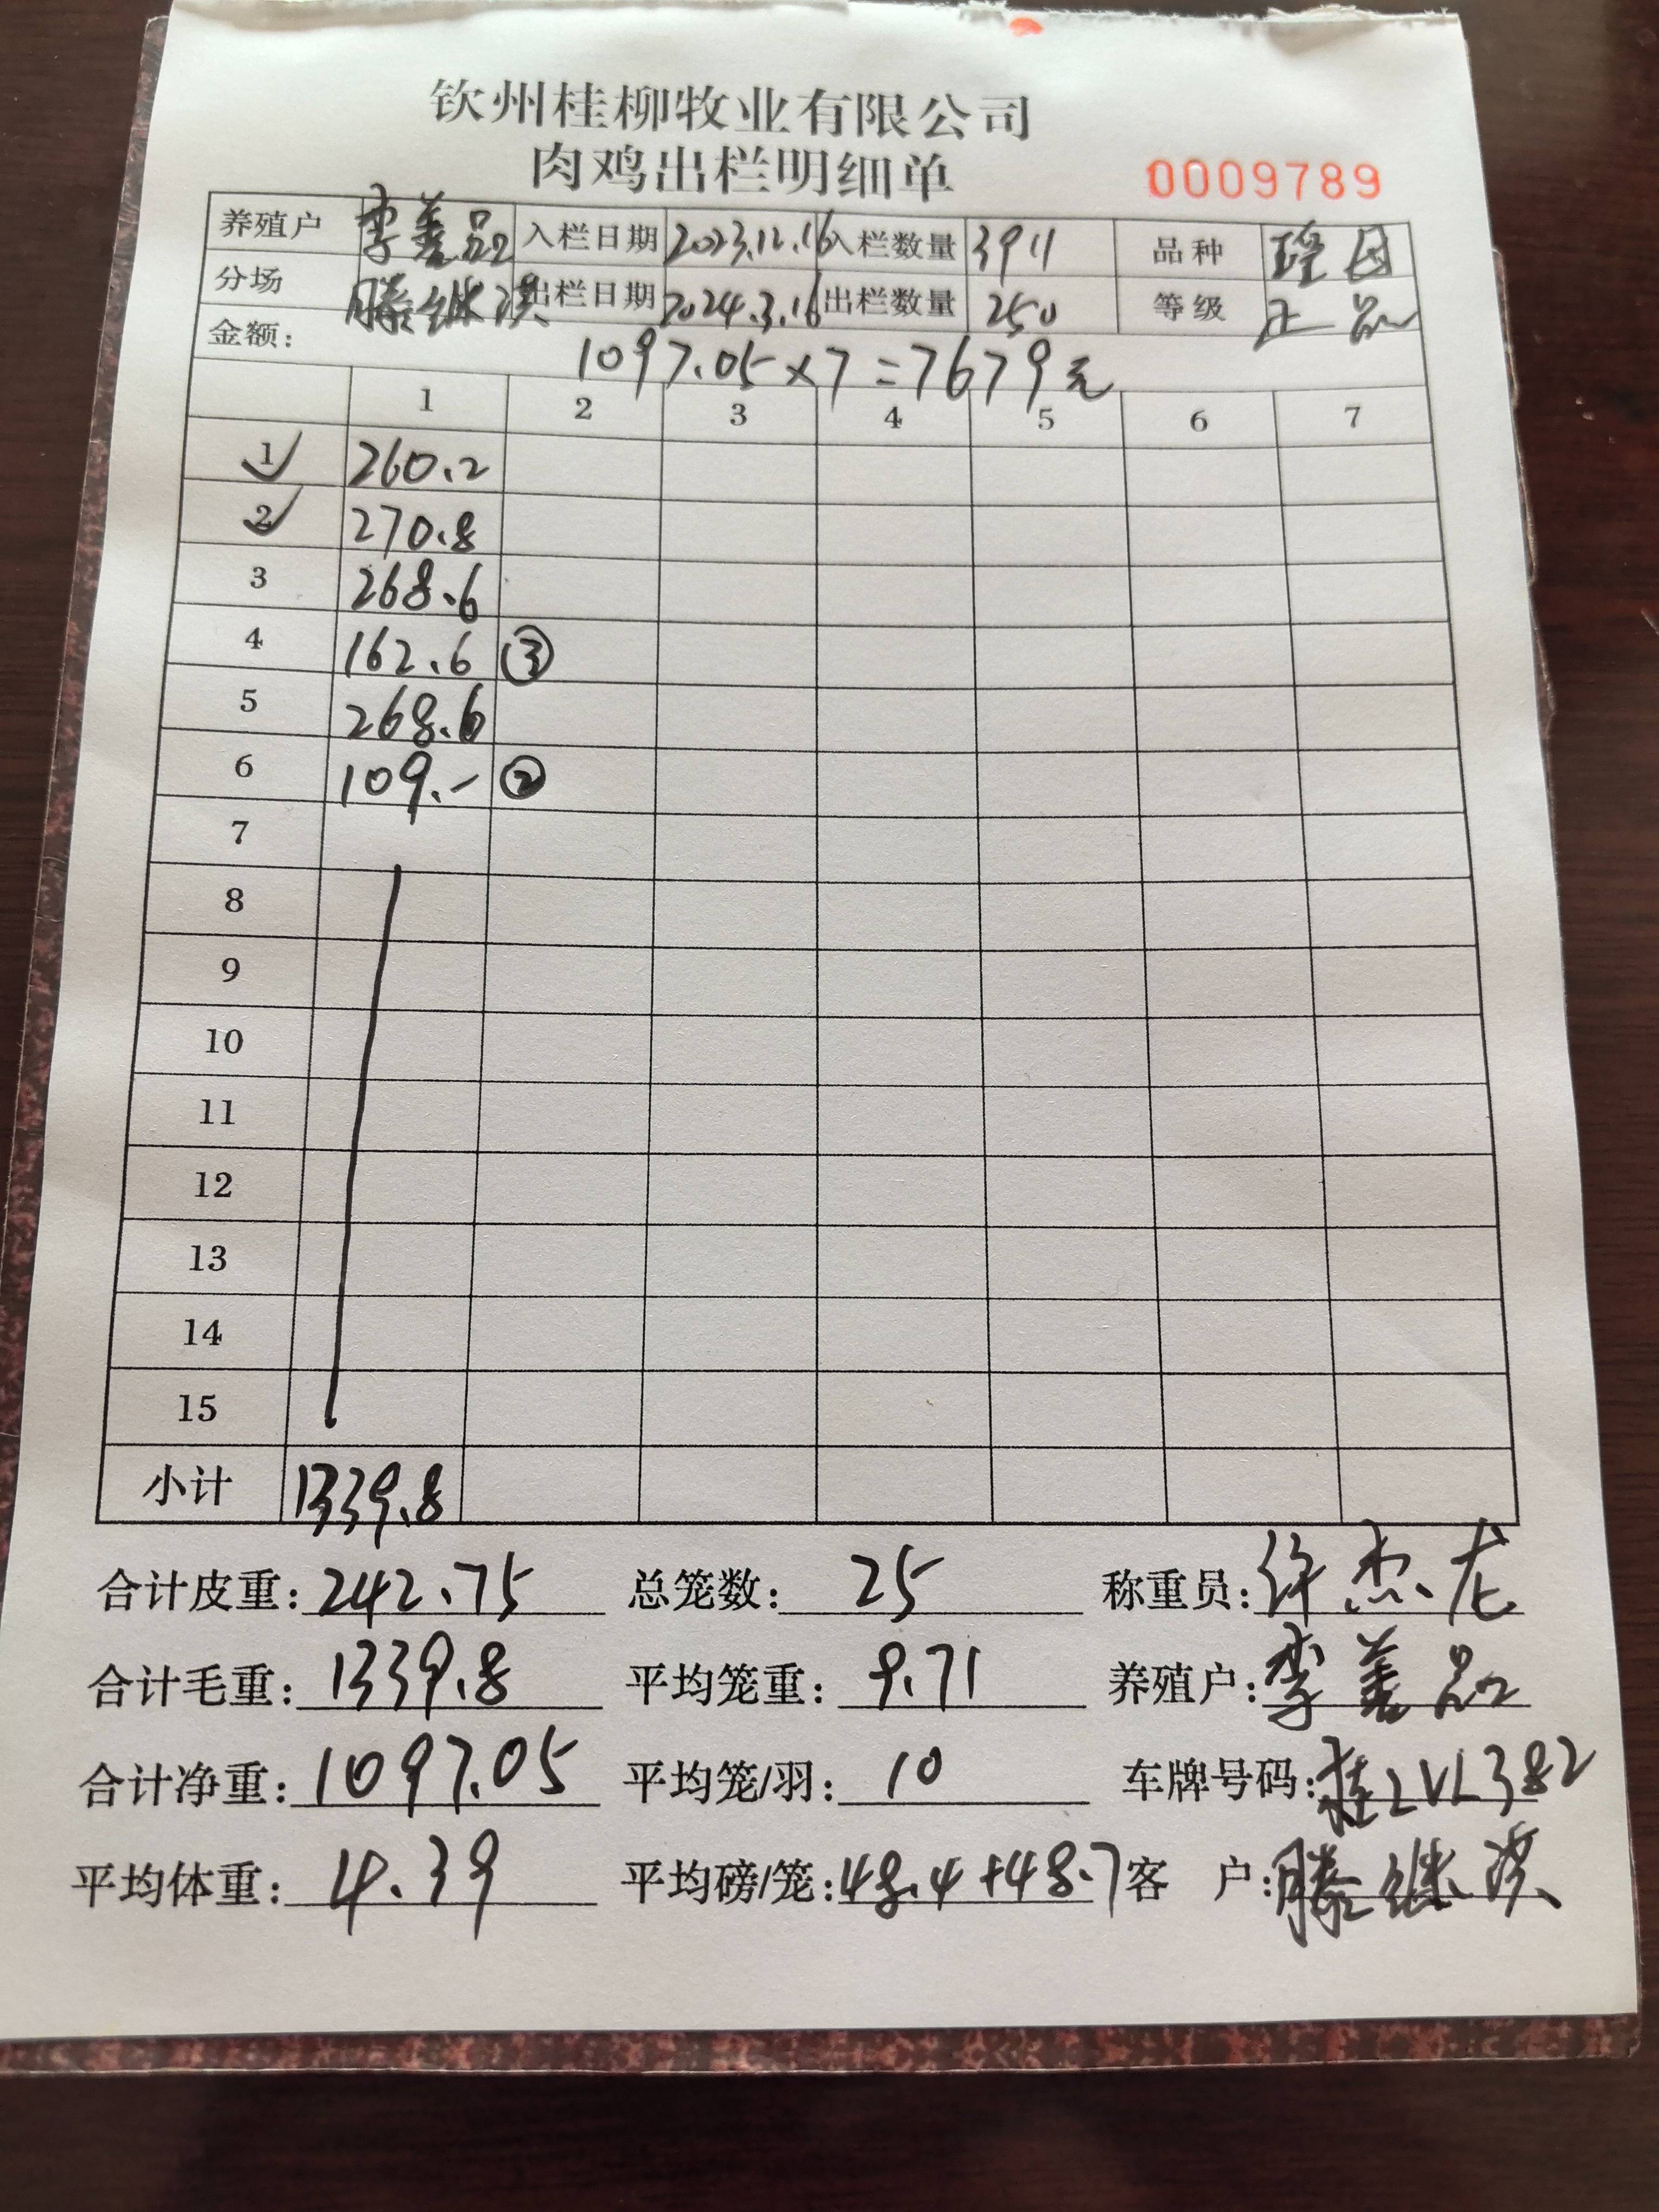 钦州桂柳牧业有限公司
肉鸡出栏明细单 0009789
养殖户 李善品 入栏日期 2023.12.16 入栏数量 3911 品种
分场 滕继洪 出栏日期 2024.3.16 出栏数量 250 等级 正品
金额: 1097.05×7=7679元
1 2 3 4 5 6 7
1 260.2
2 270.8
3 268.6
4 162.6 ③
5 268.6
6 109.- ②
7
8
9
10
11
12
13
14
15
小计 1339.8
合计皮重: 242.75 总笼数: 25 称重员: 许杰龙
合计毛重: 1339.8 平均笼重: 9.71 养殖户: 李善品
合计净重: 1097.05 平均笼/羽: 10 车牌号码: 桂LVL382
平均体重: 4.39 平均磅/笼: 48.4+48.7 客 户: 滕继洪